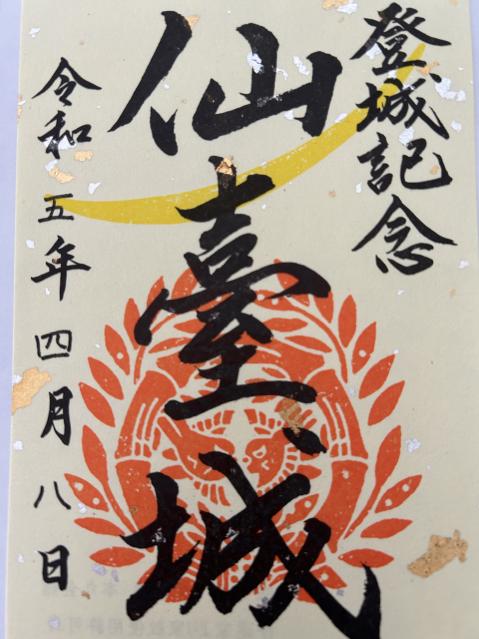 登城記念
仙臺城
令和五年四月八日